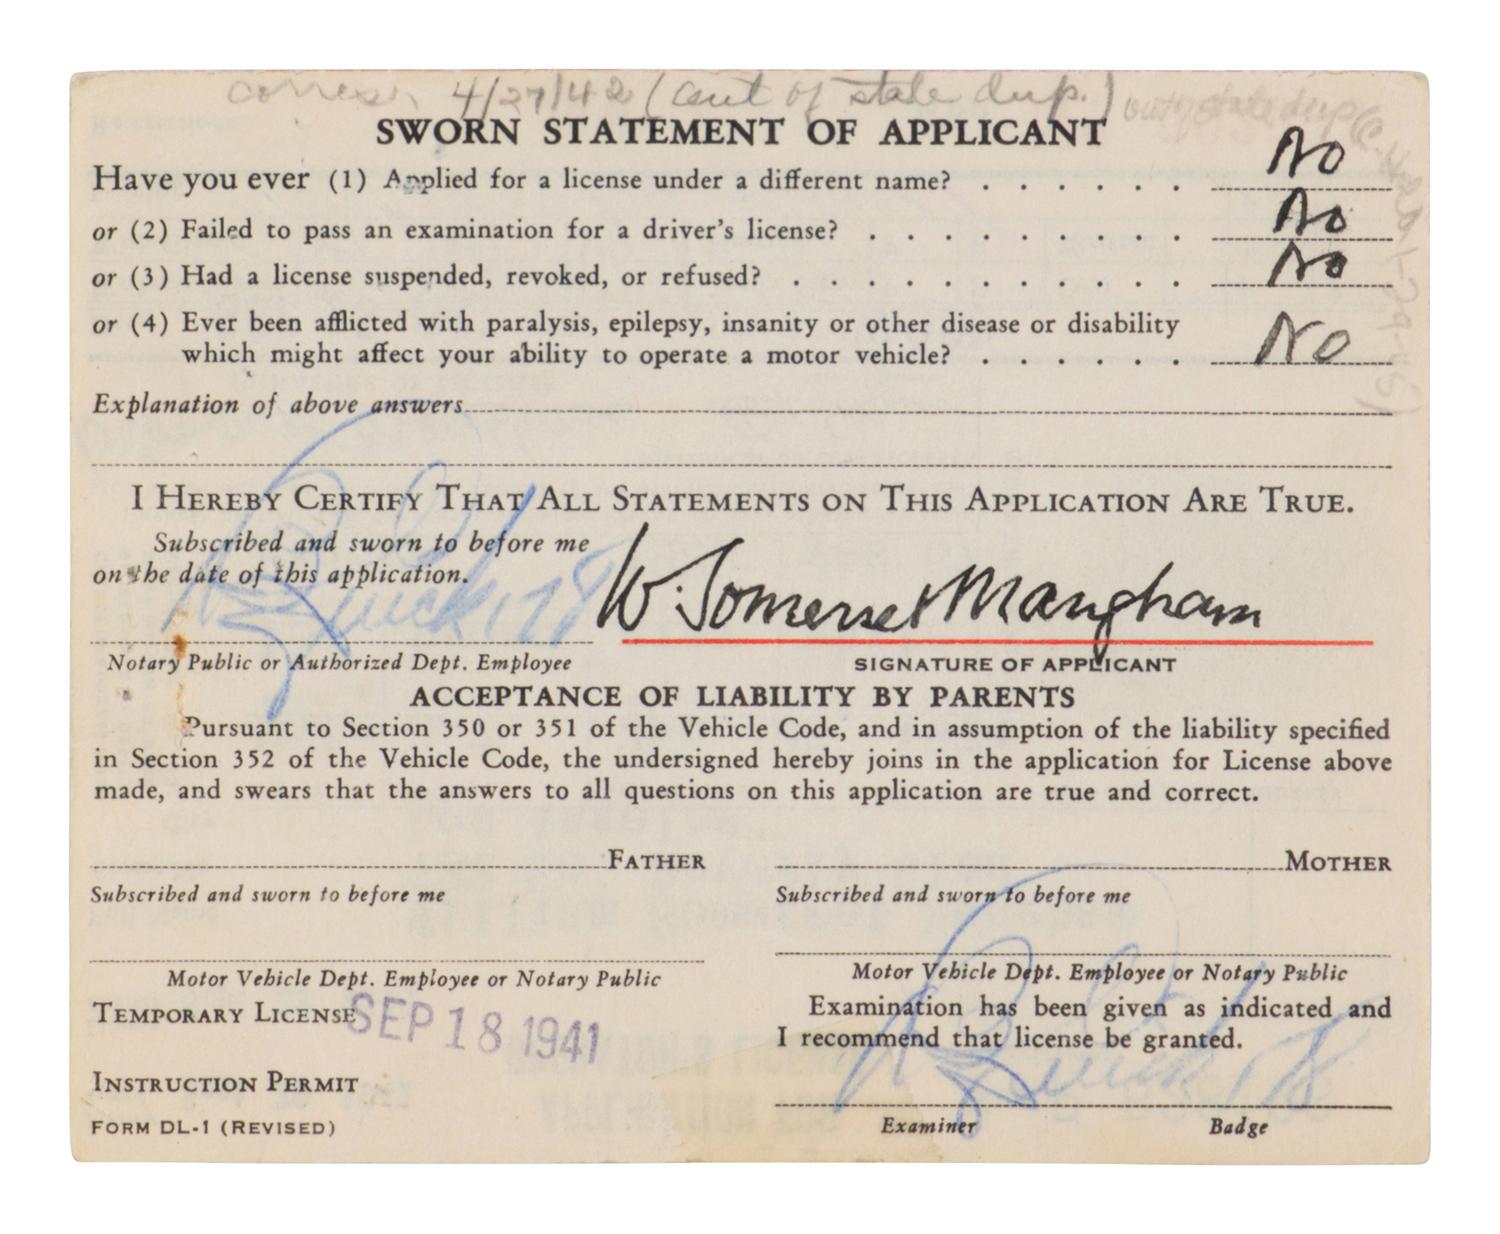 corresp. 4/27/42 (cert of state dup.)
SWORN STATEMENT OF APPLICANT
Have you ever (1) Applied for a license under a different name? . . . . . . No
or (2) Failed to pass an examination for a driver's license? . . . . . . . . . No
or (3) Had a license suspended, revoked, or refused? . . . . . . . . . . . No
or (4) Ever been afflicted with paralysis, epilepsy, insanity or other disease or disability
which might affect your ability to operate a motor vehicle? . . . . . . No
Explanation of above answers
I HEREBY CERTIFY THAT ALL STATEMENTS ON THIS APPLICATION ARE TRUE.
Subscribed and sworn to before me
on the date of this application.
W. Somerset Maugham
Notary Public or Authorized Dept. Employee
SIGNATURE OF APPLICANT
ACCEPTANCE OF LIABILITY BY PARENTS
Pursuant to Section 350 or 351 of the Vehicle Code, and in assumption of the liability specified
in Section 352 of the Vehicle Code, the undersigned hereby joins in the application for License above
made, and swears that the answers to all questions on this application are true and correct.
FATHER
MOTHER
Subscribed and sworn to before me
Subscribed and sworn to before me
Motor Vehicle Dept. Employee or Notary Public
Motor Vehicle Dept. Employee or Notary Public
TEMPORARY LICENSE SEP 18 1941
Examination has been given as indicated and
I recommend that license be granted.
INSTRUCTION PERMIT
FORM DL-1 (REVISED)
Examiner Badge